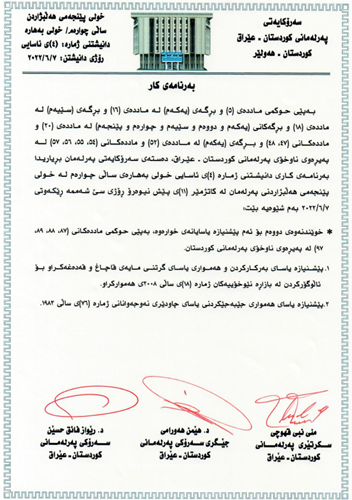 سەرۆکایەتی
پەرلەمانی کوردستان - عێراق
کوردستان - هەولێر
خولی پێنجەمی هەڵبژاردن
ساڵی چوارەم/ خولی بەهارە
دانیشتنی ژمارە: (٤)ی ئاسایی
ڕۆژی دانیشتن: ٢٠٢٢/٦/٧
بەرنامەی کار
بەپێی حوکمی ماددەی (٥) و بڕگەی (یەکەم) لە ماددەی (١٦) و بڕگەی (سێیەم) لە
ماددەی (١٨) و بڕگەکانی (یەکەم و دووەم و سێیەم و چوارەم و پێنجەم) لە ماددەی (٢٠) و
ماددەکانی (٤٧، ٤٨) و بڕگەی (یەکەم) لە ماددەی (٥٢) و ماددەکانی (٥٤، ٥٥، ٥٦، ٥٧) لە
پەیڕەوی ناوخۆی پەرلەمانی کوردستان - عێراق، دەستەی سەرۆکایەتی پەرلەمان بڕیاریدا
بەرنامەی کاری دانیشتنی ژمارە (٤)ی ئاسایی خولی بەهارەی ساڵی چوارەم لە خولی
پێنجەمی هەڵبژاردنی پەرلەمان لە کاتژمێر (١١)ی پێش نیوەڕۆ ڕۆژی سێ شەممە ڕێکەوتی
٢٠٢٢/٦/٧ بەم شێوەیە بێت:
* خوێندنەوەی دووەم بۆ ئەم پێشنیازە یاسایانەی خوارەوە، بەپێی حوکمی ماددەکانی (٨٧، ٨٨، ٨٩،
٩٧) لە پەیڕەوی ناوخۆی پەرلەمانی کوردستان.
١. پێشنیازە یاسای بەرکارکردن و هەمواری یاسای گرتنی مایەی قاچاغ و قەدەغەکراو بۆ
ئاڵوگۆڕکردن لە بازاڕە نێوخۆییەکان ژمارە (١٨)ی ساڵی ٢٠٠٨ی هەموارکراو.
٢. پێشنیازە یاسای هەمواری جێبەجێکردنی یاسای چاودێری نەوجەوانانی ژمارە (٧٦)ی ساڵی ١٩٨٣.
منی نبی قهوچی
سکرتێری پەرلەمانی
کوردستان - عێراق
د. هێمن هەورامی
جێگری سەرۆکی پەرلەمانی
کوردستان - عێراق
د. ڕێواز فائق حسێن
سەرۆکی پەرلەمانی
کوردستان - عێراق